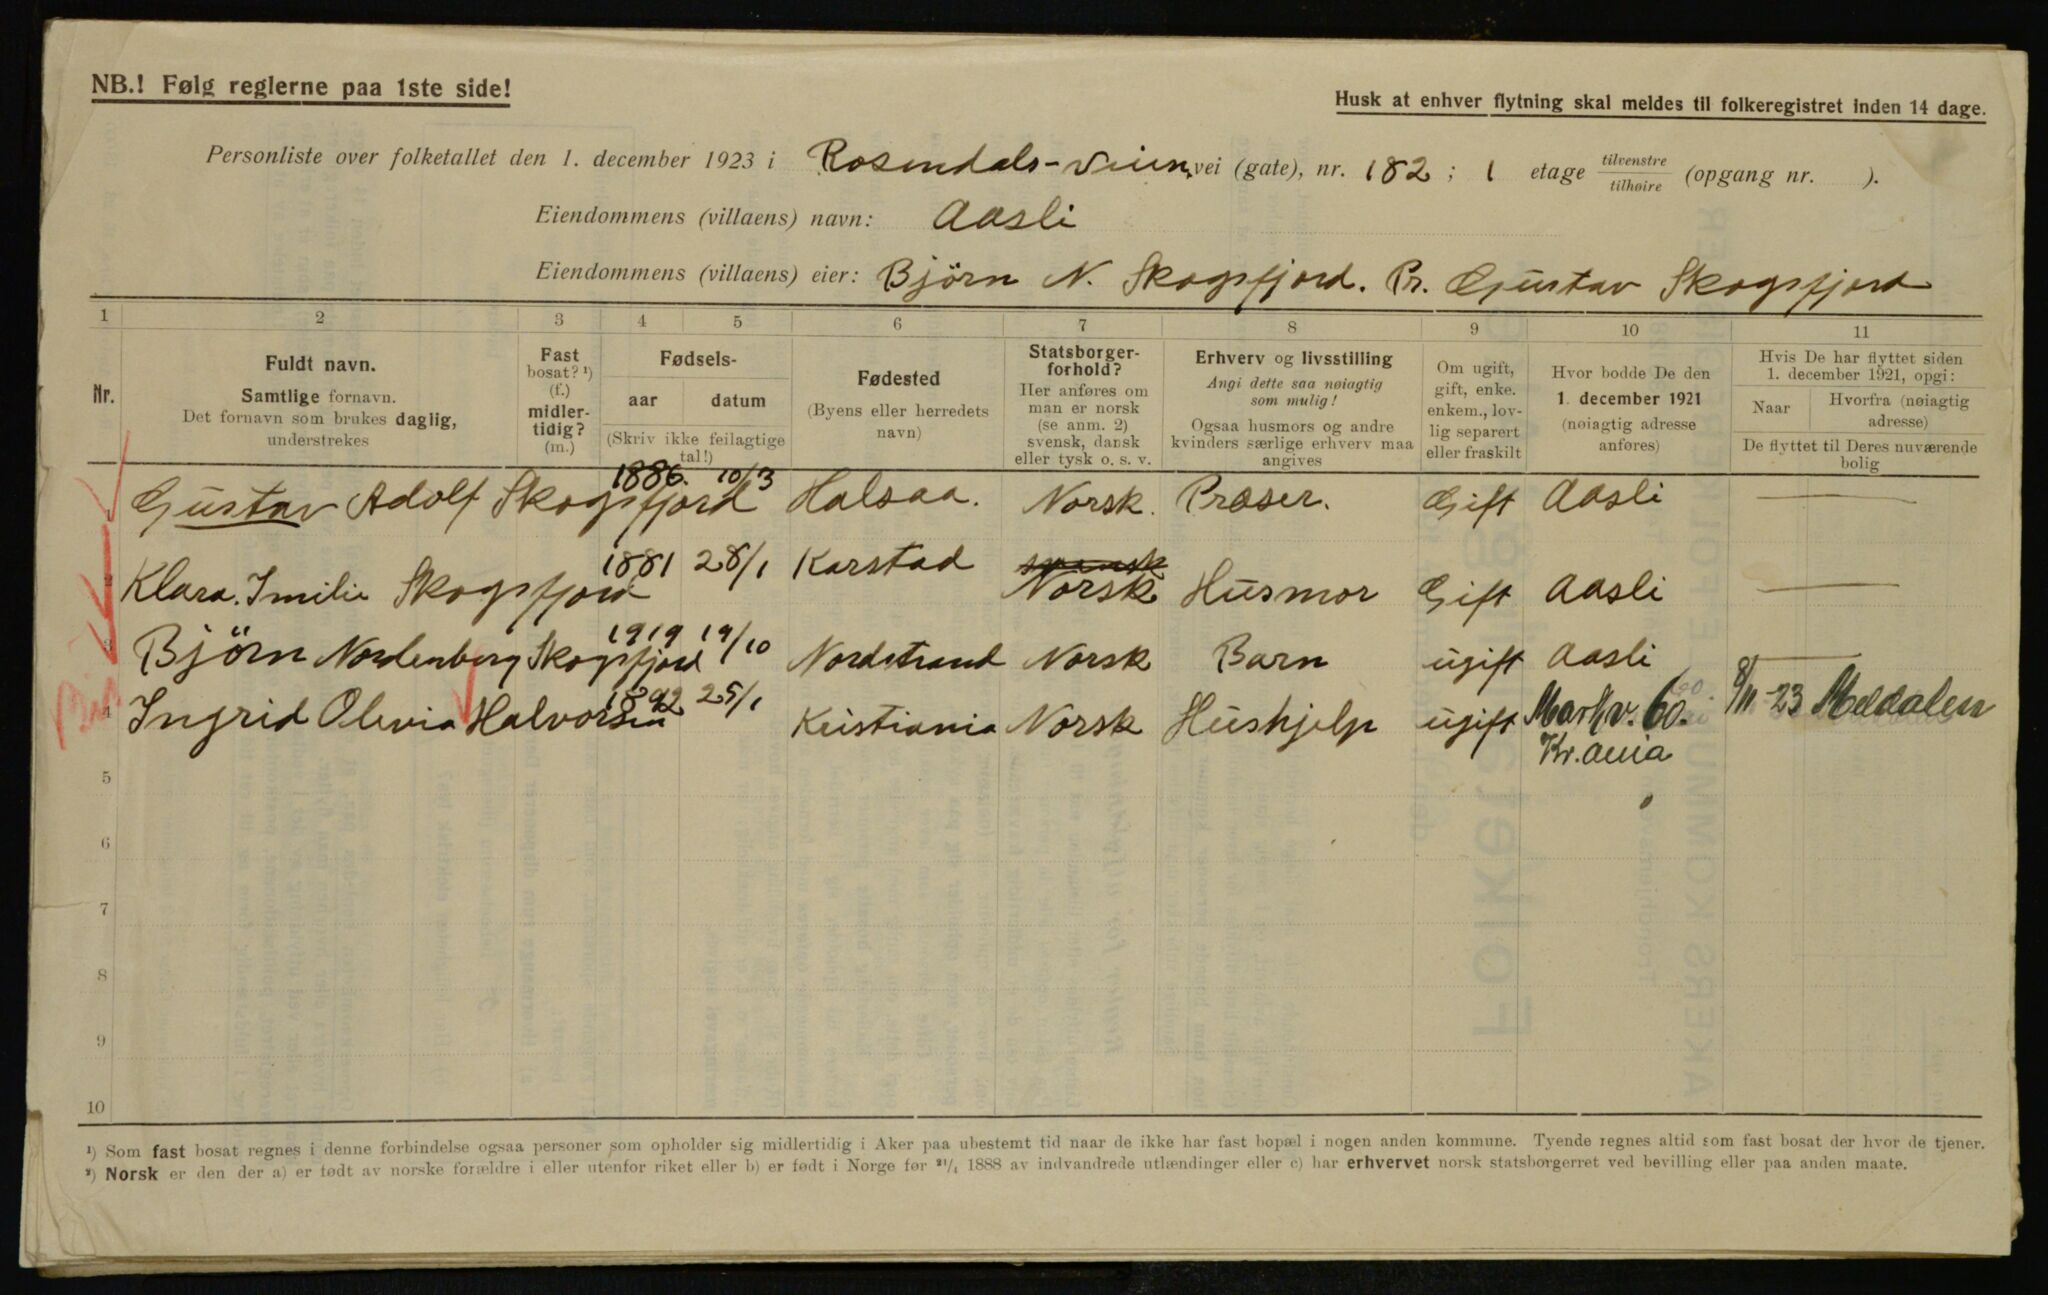 NB.! Følg reglerne paa 1ste side!
Husk at enhver flytning skal meldes til folkeregistret inden 14 dage.
Personliste over folketallet den 1. december 1923 i Rosendals-veien vei (gate), nr. 182 ; 1 etage tilvenstre tilhøire (opgang nr. ).
Eiendommens (villaens) navn: Aasli
Eiendommens (villaens) eier: Björn N. Skogsfjord. Pr. Gustav Skogsfjord
1 2 3 4 5 6 7 8 9 10 11
Nr.
Fuldt navn.
Samtlige fornavn.
Det fornavn som brukes daglig,
understrekes
Fast
bosat? ¹)
(f.)
midler-
tidig?
(m.)
Fødsels-
aar datum
(Skriv ikke feilagtige
tal!)
Fødested
(Byens eller herredets
navn)
Statsborger-
forhold?
Her anføres om
man er norsk
(se anm. 2)
svensk, dansk
eller tysk o. s. v.
Erhverv og livsstilling
Angi dette saa nøiagtig
som mulig!
Ogsaa husmors og andre
kvinders særlige erhverv maa
angives
Om ugift,
gift, enke.
enkem., lov-
lig separert
eller fraskilt
Hvor bodde De den
1. december 1921
(nøiagtig adresse
anføres)
Hvis De har flyttet siden
1. december 1921, opgi:
Naar Hvorfra (nøiagtig
adresse)
De flyttet til Deres nuværende
bolig
Gustav Adolf Skogsfjord 1886. 10/3 Halsaa. Norsk. Præser. Gift Aasli
2 Klara. Imilie Skogsfjord 1881 28/1 Karstad Norsk Husmor Gift Aasli
3 Björn Nordenberg Skogsfjord 1919 19/10 Nordstrand Norsk Barn ugift Aasli
4 Ingrid Olevia Halvorsen 1892 25/1 Kristiania Norsk Hushjelp ugift Markv. 60. 8/11-23 Meldalen
Kr.ania
5
6
7
8
9
10
¹) Som fast bosat regnes i denne forbindelse ogsaa personer som opholder sig midlertidig i Aker paa ubestemt tid naar de ikke har fast bopæl i nogen anden kommune. Tyende regnes altid som fast bosat der hvor de tjener.
²) Norsk er den der a) er født av norske forældre i eller utenfor riket eller b) er født i Norge før ²¹/₄ 1888 av indvandrede utlændinger eller c) har erhvervet norsk statsborgerret ved bevilling eller paa anden maate.